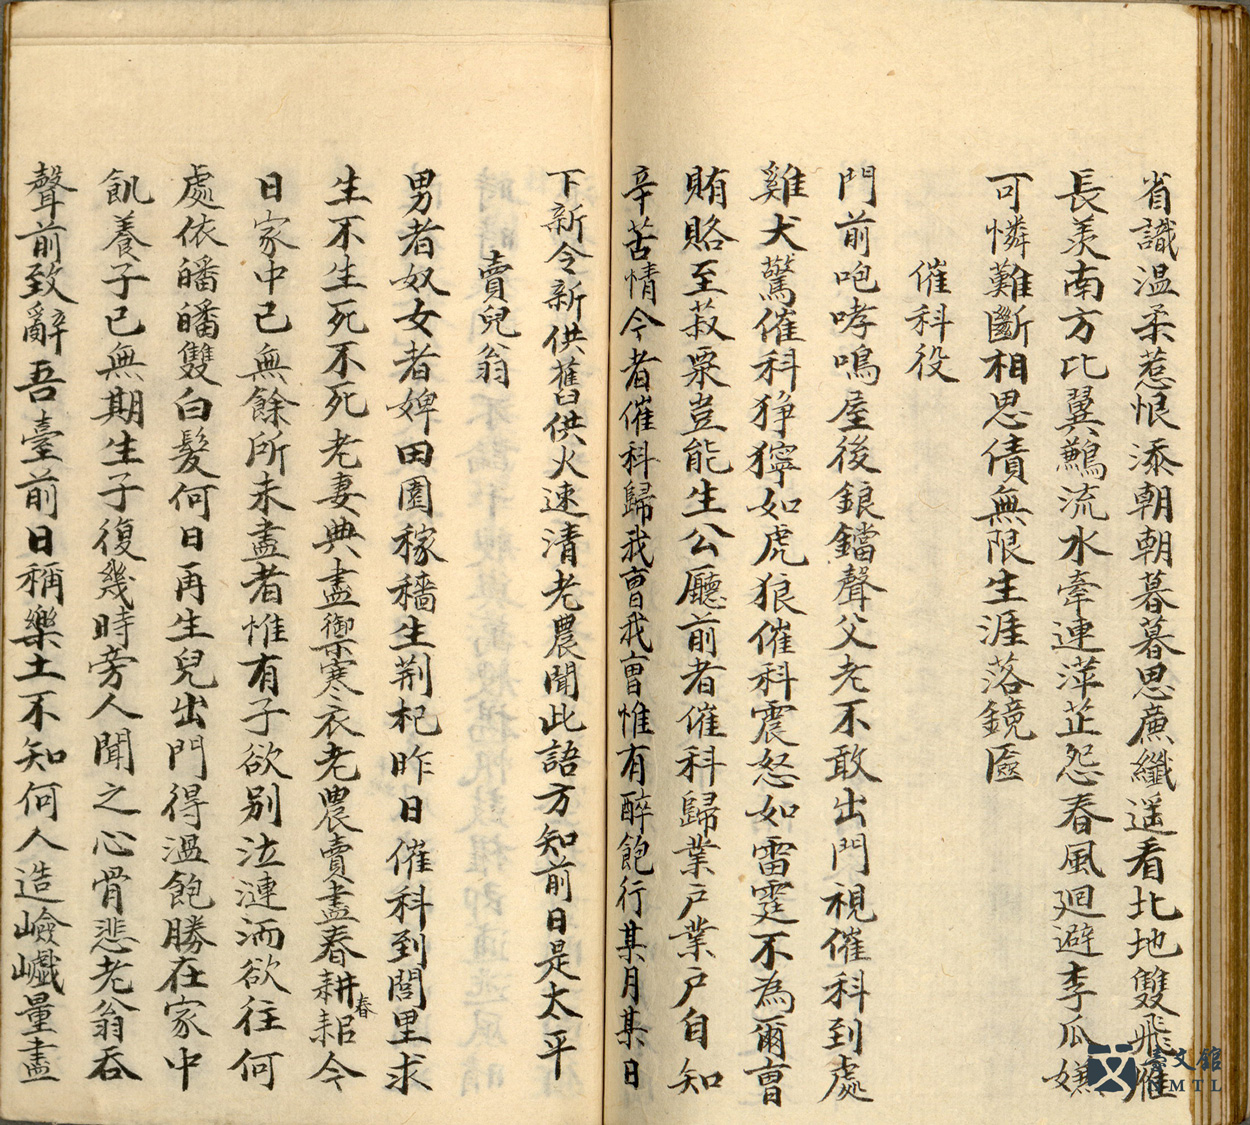 省識溫柔惹恨添朝朝暮暮思廉纖遥看北地雙飛雁
長羡南方比翼鶼流水牽連萍芷怨春風廻避李瓜嫌
可憐難斷相思債無限生涯落鏡匳
催科役
門前咆哮鳴屋後鋃鐺聲父老不敢出門視催科到處
雞犬驚催科猙獰如虎狼催科震怒如雷霆不為爾曹
賄賂至菽粟豈能生公廳前者催科歸業戶業戶自知
辛苦情今者催科歸我曹我曹惟有醉飽行某月某日
下新令新供舊供火速清老農聞此語方知前日是太平
賣兒翁
男者奴女者婢田園稼穡生荆杞昨日催科到閭里求
生不生死不死老妻典盡禦寒衣老農賣盡春耕耜今
春
日家中已無餘所未盡者惟有子欲别泣漣洏欲往何
處依皤皤雙白髮何日再生兒出門得溫飽勝在家中
飢養子已無期生子復幾時旁人聞之心骨悲老翁吞
聲前致辭吾臺前日稱樂土不知何人造嶮巇量盡
臺文館
NMTL